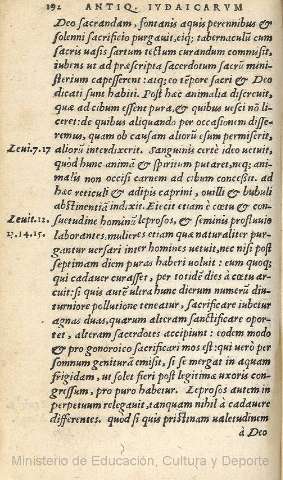 192 ANTIQ. IVDAICARVM
Deo sacrandam, fontanis aquis perennibus &
solenni sacrificio purgauit, eiq; tabernaculū cum
sacris uasis sartum tectum curandum commisit,
iubens ut ad præscripta sacerdotum sacrū mini-
sterium capesserent: atq; eo tēpore sacri & Deo
dicati sunt habiti. Post hac animalia discreuit,
quæ ad cibum essent pura, & quibus uesci nō li-
ceret: de quibus aliquando per occasionem disse-
remus, quam ob causam aliorū esum permiserit,
Leui.7.17 aliorū interdixerit. Sanguinis certè ideo uetuit,
quòd hunc animā & spiritum putaret, neq; ani-
malis non occisi carnem ad cibum concessit. ad
hæc reticuli & adipis caprini, ouilli & bubuli
abstinentiā indixit. Eiecit etiam è cœtu & con-
Leuit.12. suetudine hominū leprosos, & seminis profluuio
13.14.15. laborantes, mulieres etiam quæ naturaliter pur-
gantur uersari inter homines uetuit, nec nisi post
septimam diem puras haberi uoluit: eum quoq;
qui cadauer curasset, per totidē dies à cœtu ar-
cuit: si quis autē ultra hunc dierum numerū diu-
turniore pollutione teneatur, sacrificare iubetur
agnas duas, quarum alteram sanctificare opor-
tet, alteram sacerdotes accipiunt: eodem modo
& pro gonoroico sacrificari mos est: qui uerò per
somnum genitură emisit, si se mergat in aquam
frigidam, ut solet fieri post legitimæ uxoris con-
gressum, pro puro habetur. Leprosos autem in
perpetuum relegauit, tanquam nihil à cadauere
differentes. quòd si quis pristinam ualetudinem
à Deo
Ministerio de Educación, Cultura y Deporte